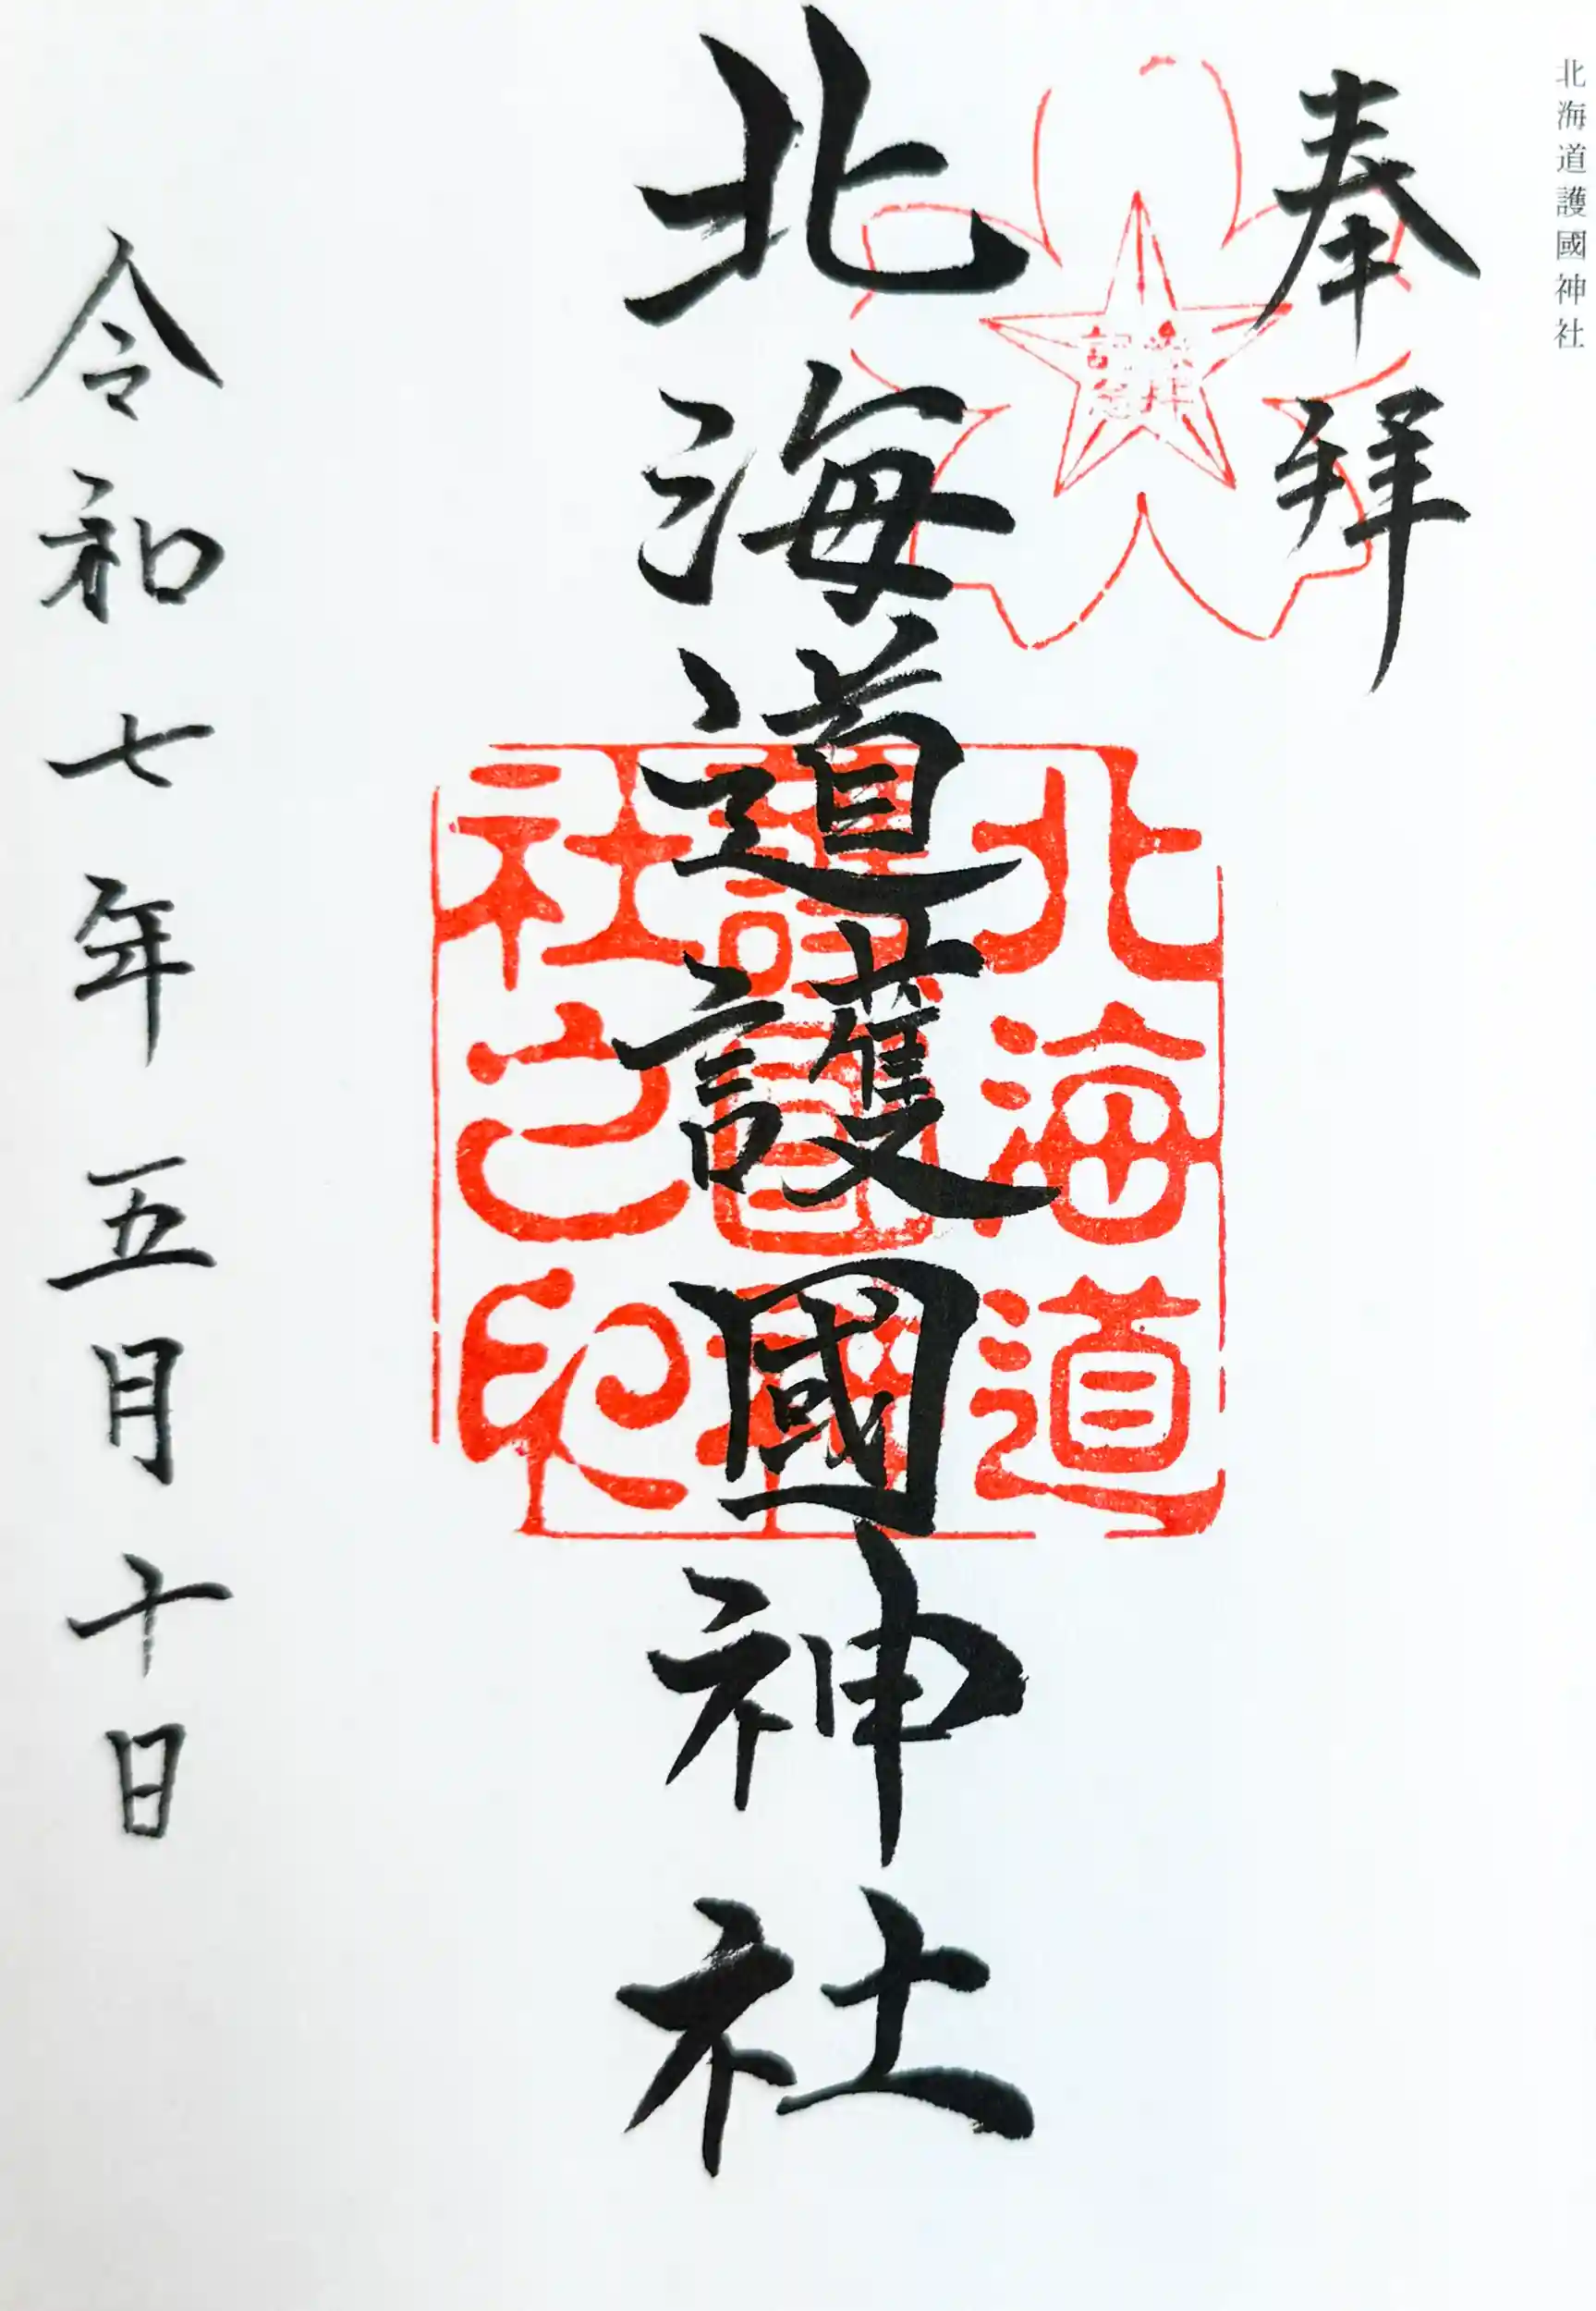 北海道護國神社
奉拜
參拝
記念
北海道護國神社
北海道
護國神
社之印
令和七年五月十日